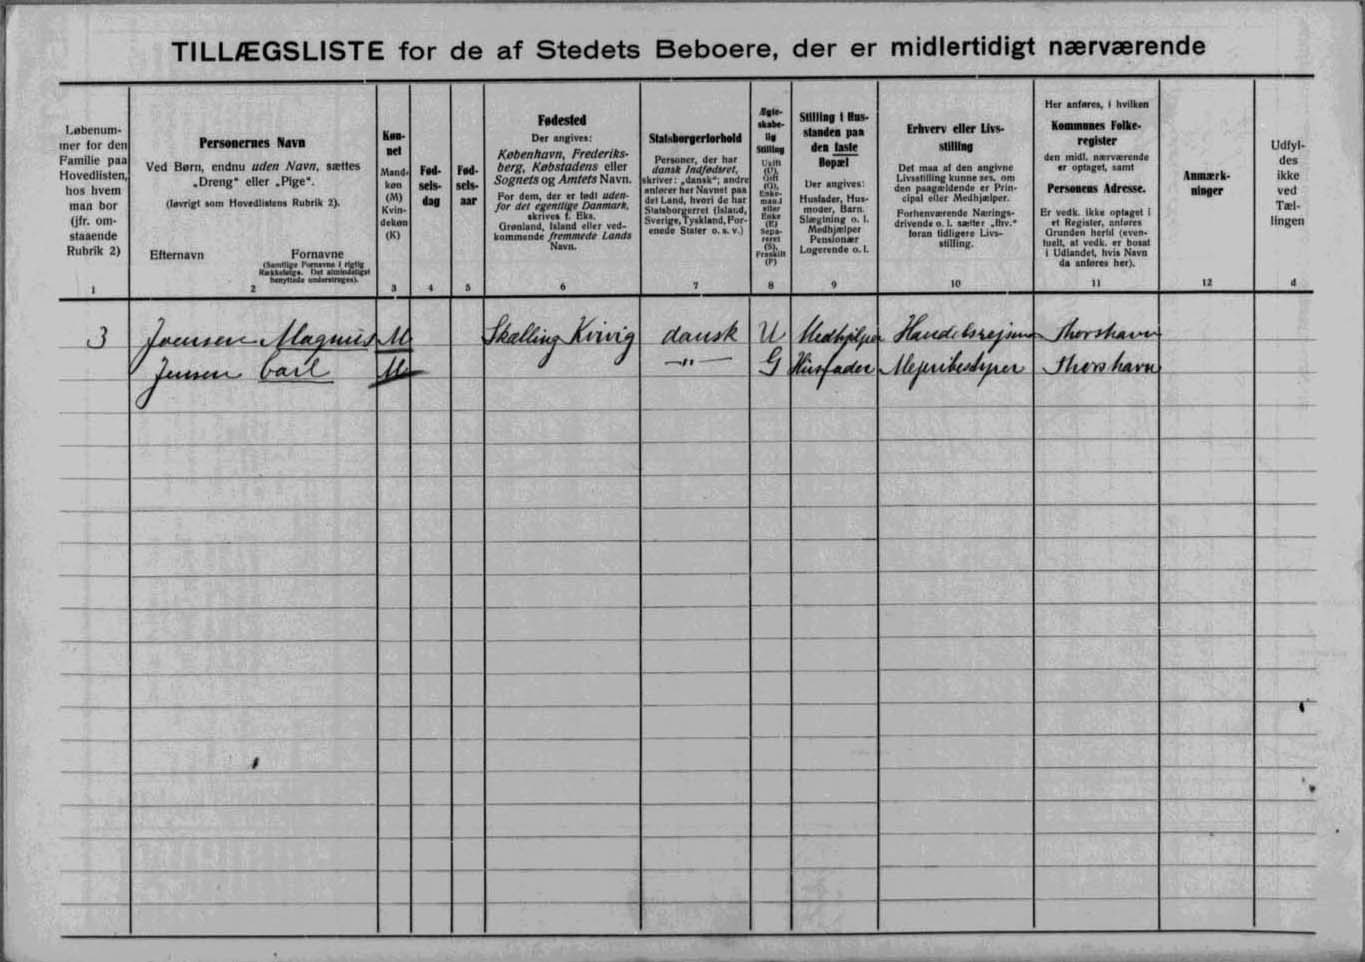 TILLÆGSLISTE for de af Stedets Beboere, der er midlertidigt nærværende
Løbenum-
mer for den
Familie paa
Hovedlisten,
hos hvem
man bor
(jfr. om-
staaende
Rubrik 2)
1
Personernes Navn
Ved Børn, endnu uden Navn, sættes
„Dreng" eller „Pige".
(Iøvrigt som Hovedlistens Rubrik 2).
Efternavn Fornavne
(Samtlige Fornavne i rigtig
Rækkefølge. Det almindeligst
benyttede understreges).
2
Køn-
net
Mand-
køn
(M)
Kvin-
dekøn
(K)
3
Fød-
sels-
dag
4
Fød-
sels-
aar
5
Fødested
Der angives:
København, Frederiks-
berg, Købstadens eller
Sognets og Amtets Navn.
For dem, der er født uden-
for det egentlige Danmark,
skrives f. Eks.
Grønland, Island eller ved-
kommende fremmede Lands
Navn.
6
Statsborgerforhold
Personer, der har
dansk Indfødsret,
skriver: „dansk"; andre
anfører her Navnet paa
det Land, hvori de har
Statsborgerret (Island,
Sverige, Tyskland, For-
enede Stater o. s. v.)
7
Ægte-
skabe-
lig
Stilling
Ugift
(U),
Gift
(G),
Enke-
mand
eller
Enke
(E)
Sepa-
reret
(S),
Fraskilt
(F)
8
Stilling i Hus-
standen paa
den faste
Bopæl
Der angives:
Husfader, Hus-
moder, Barn,
Slægtning o. l.
Medhjælper
Pensionær
Logerende o. l.
9
Erhverv eller Livs-
stilling
Det maa af den angivne
Livsstilling kunne ses, om
den paagældende er Prin-
cipal eller Medhjælper.
Forhenværende Nærings-
drivende o. l. sætter „fhv."
foran tidligere Livs-
stilling.
10
Her anføres, i hvilken
Kommunes Folke-
register
den midl. nærværende
er optaget, samt
Personens Adresse.
Er vedk. ikke optaget i
et Register, anføres
Grunden hertil (even-
tuelt, at vedk. er bosat
i Udlandet, hvis Navn
da anføres her).
11
Anmærk-
ninger
12
Udfyl-
des
ikke
ved
Tæl-
lingen
d
3 Joensen Magnus M Skælling Kvivig dansk U Medhjælper Handelsrejsende Thorshavn
Jensen Carl M —"— G Husfader Mejeribestyrer Thorshavn